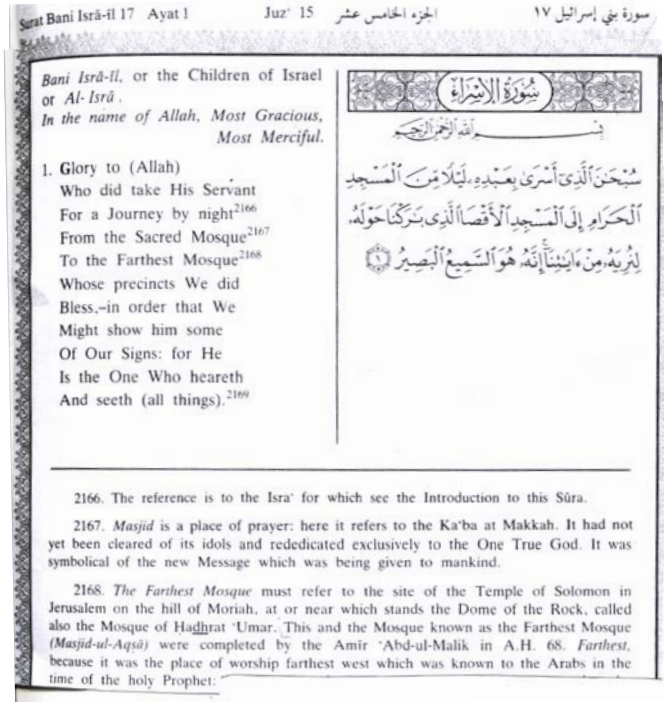 Surat Bani Isrâ-îl 17 Ayat 1 Juz' 15 الجزء الخامس عشر سورة بني إسرائيل ١٧
Bani Isrâ-îl, or the Children of Israel
or Al-Isrâ .
In the name of Allah, Most Gracious,
Most Merciful.
1. Glory to (Allah)
Who did take His Servant
For a Journey by night2166
From the Sacred Mosque2167
To the Farthest Mosque2168
Whose precincts We did
Bless,–in order that We
Might show him some
Of Our Signs: for He
Is the One Who heareth
And seeth (all things).2169
سُورَةُ الإِسْرَاءِ
بِسْمِ اللَّهِ الرَّحْمَٰنِ الرَّحِيمِ
سُبْحَٰنَ ٱلَّذِىٓ أَسْرَىٰ بِعَبْدِهِۦ لَيْلًا مِّنَ ٱلْمَسْجِدِ
ٱلْحَرَامِ إِلَى ٱلْمَسْجِدِ ٱلْأَقْصَا ٱلَّذِى بَٰرَكْنَا حَوْلَهُۥ
لِنُرِيَهُۥ مِنْ ءَايَٰتِنَآ إِنَّهُۥ هُوَ ٱلسَّمِيعُ ٱلْبَصِيرُ ١
2166. The reference is to the Isra' for which see the Introduction to this Sûra.
2167. Masjid is a place of prayer: here it refers to the Ka'ba at Makkah. It had not
yet been cleared of its idols and rededicated exclusively to the One True God. It was
symbolical of the new Message which was being given to mankind.
2168. The Farthest Mosque must refer to the site of the Temple of Solomon in
Jerusalem on the hill of Moriah, at or near which stands the Dome of the Rock, called
also the Mosque of Hadhrat 'Umar. This and the Mosque known as the Farthest Mosque
(Masjid-ul-Aqsâ) were completed by the Amîr 'Abd-ul-Malik in A.H. 68. Farthest,
because it was the place of worship farthest west which was known to the Arabs in the
time of the holy Prophet: